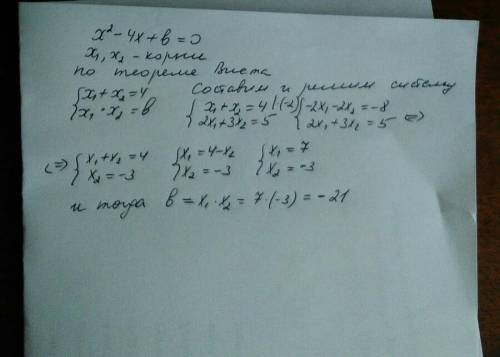 x² - 4x + b = 0
x₁, x₂ - корни
по теореме Виета
{x₁ + x₂ = 4
{x₁ · x₂ = b
Составим и решим систему
{x₁ + x₂ = 4 | (-2)
{2x₁ + 3x₂ = 5
{-2x₁ - 2x₂ = -8
{2x₁ + 3x₂ = 5 <=>
<=> {x₁ + x₂ = 4
{x₂ = -3
{x₁ = 4 - x₂
{x₂ = -3
{x₁ = 7
{x₂ = -3
и тогда b = x₁ · x₂ = 7 · (-3) = -21